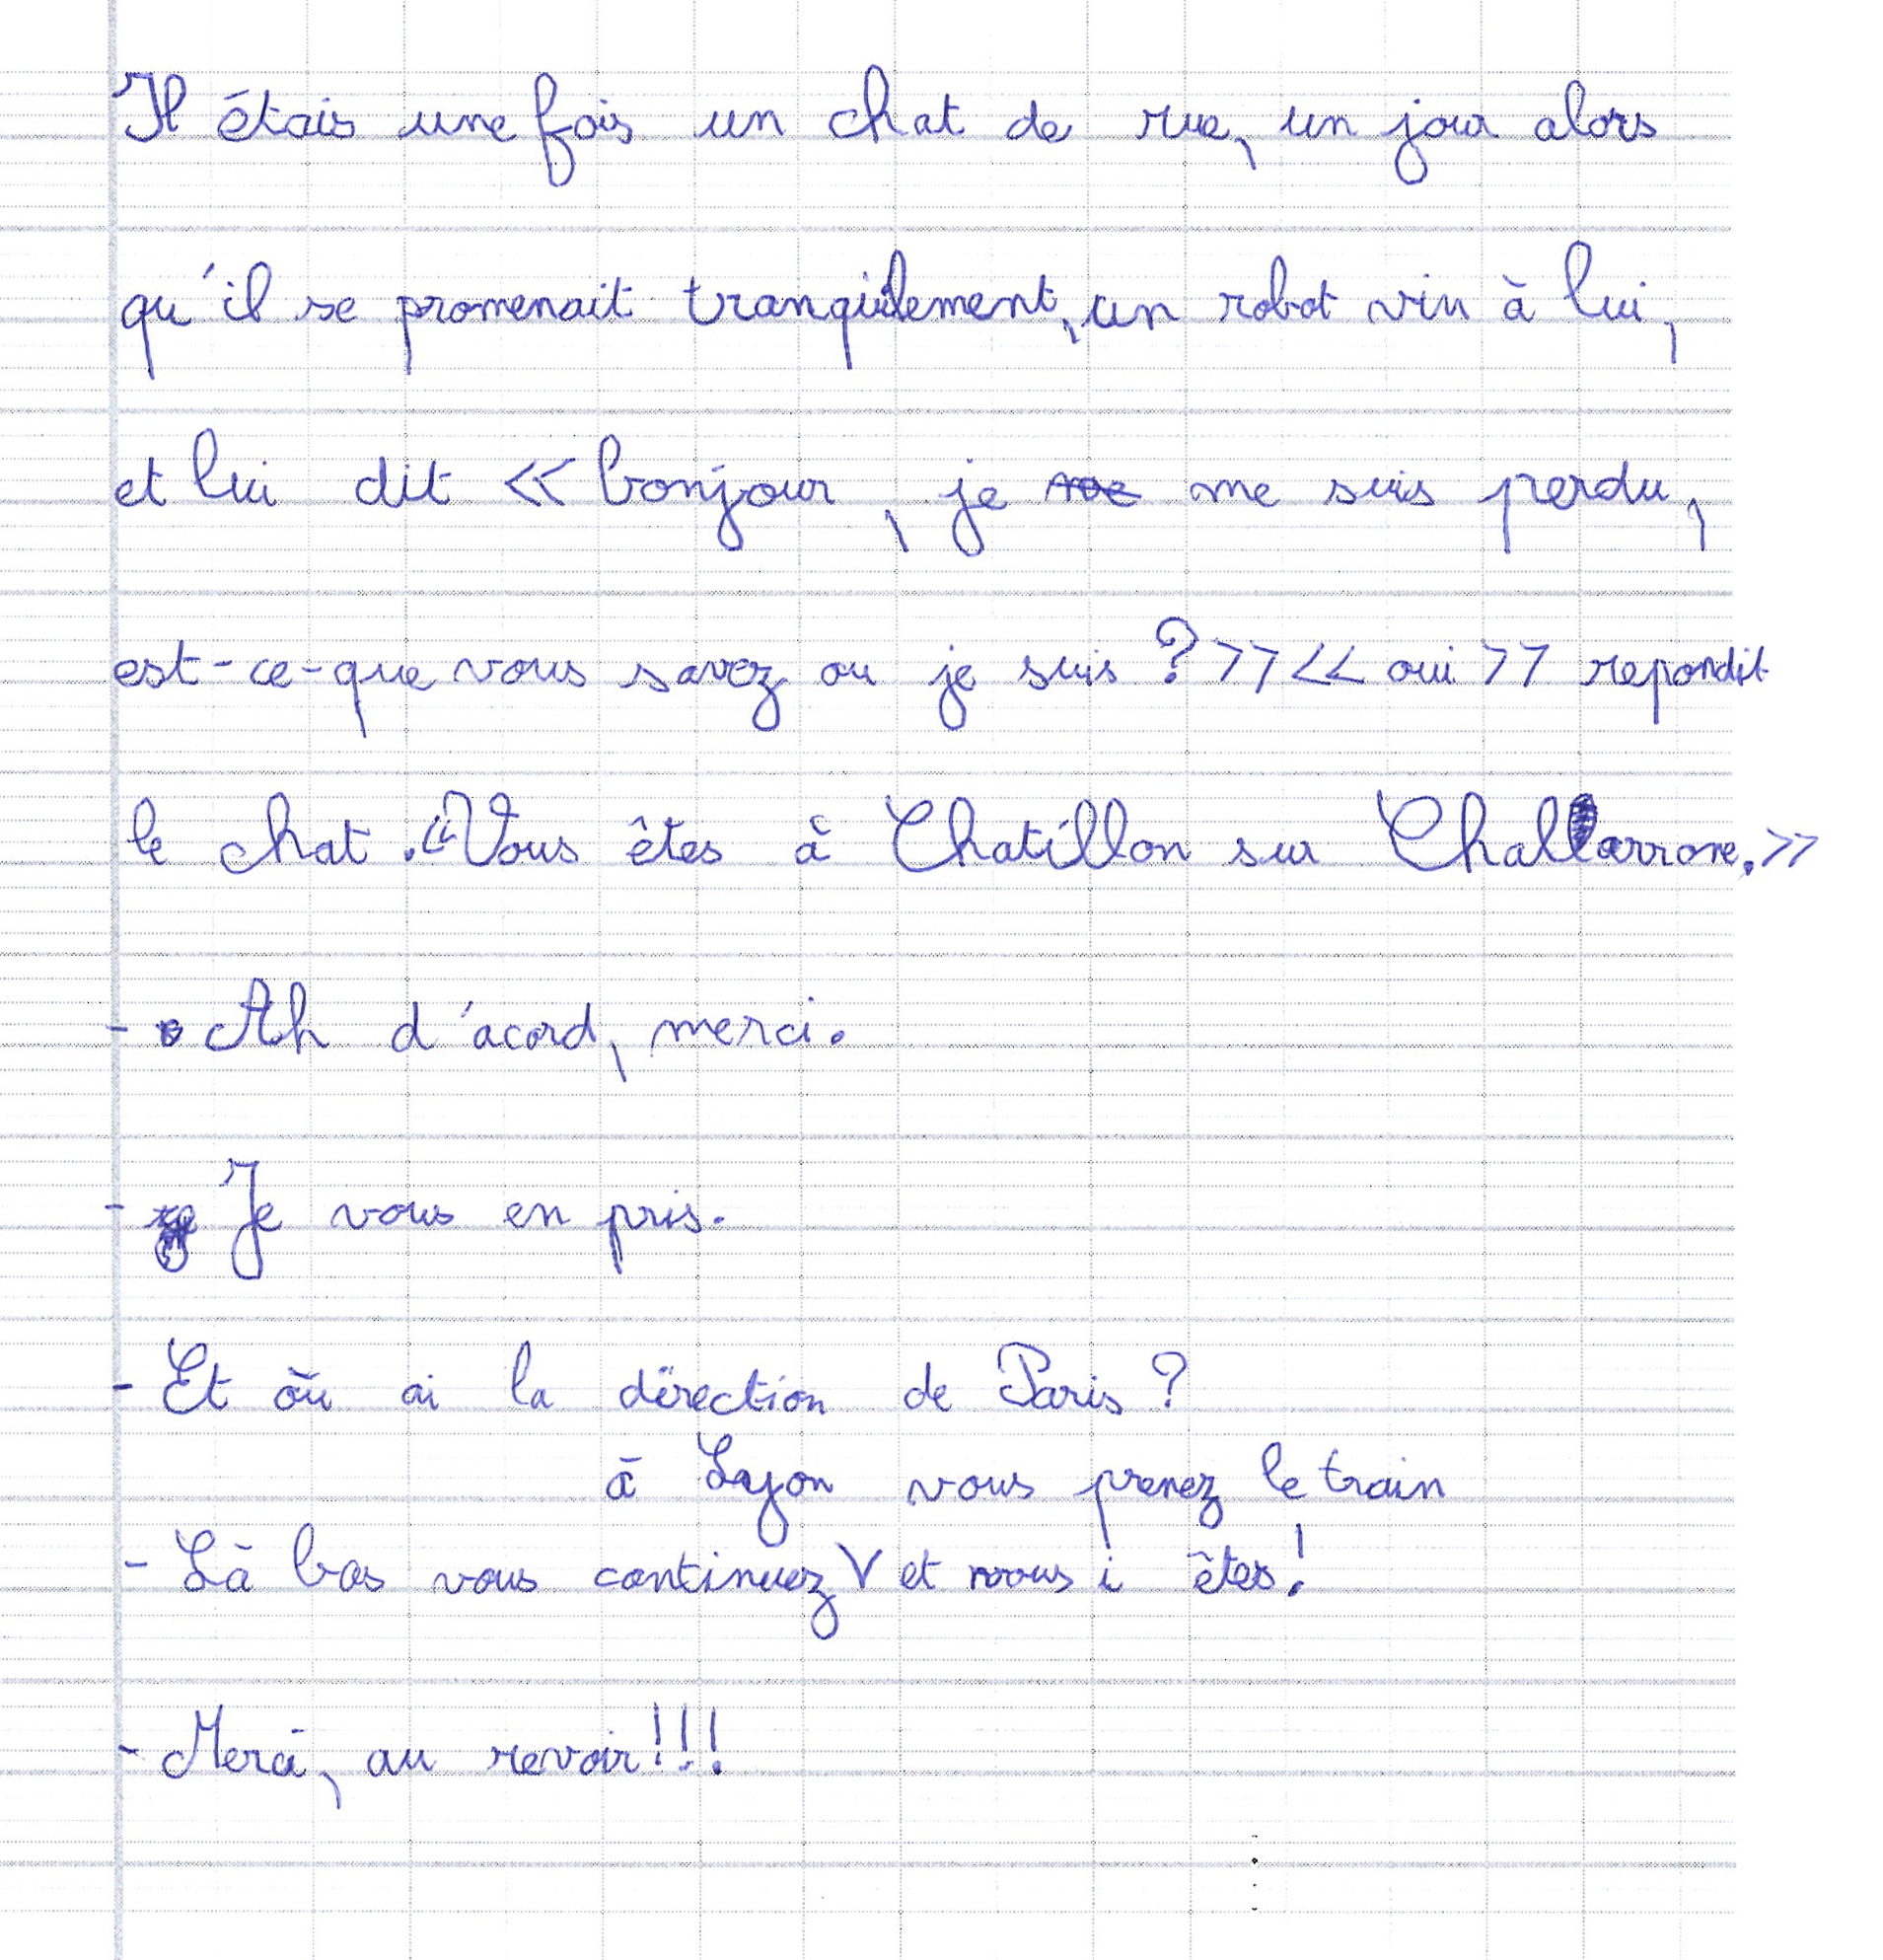 Il étais une fois un chat de rue, un jour alors
qu'il se promenait tranquilement, un robot vin à lui,
et lui dit << bonjour, je me suis perdu,
est-ce-que vous savez ou je suis ? >> << oui >> repondit
le chat. «Vous êtes à Chatillon sur Challarrone.>>
- Ah d'acord, merci.
- Je vous en pris.
- Et où ai la direction de Paris ?
à Lyon vous prenez le train
- Là bas vous continuez V et vous i êtes!
- Merci, au revoir!!!